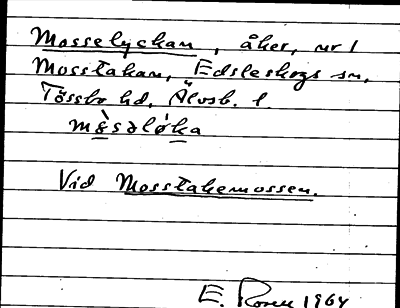 Mosselyckan, åker, nr 1
Mosstakan, Edsleskogs sn,
Tössbo hd, Älvsb. l.
mòsəlo̢ka
Vid Mosstakemossen.
E. Rosen 1964